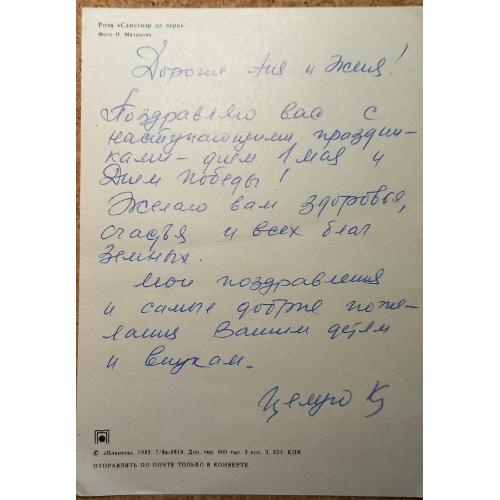 Роза «Сантенэр да лурд»
Фото И. Матанова
Дорогие Аня и Женя!
Поздравляю вас с
наступающими праздни-
ками – днём 1 мая и
Днем Победы!
Желаю вам здоровья,
счастья и всех благ
земных.
Мои поздравления
и самые добрые поже-
лания Вашим детям
и внукам.
Целую К
© «Планета», 1985. 7/8в-6819. Доп. тир. 900 тыс. 3 коп. З. 821. КПК
ОТПРАВЛЯТЬ ПО ПОЧТЕ ТОЛЬКО В КОНВЕРТЕ